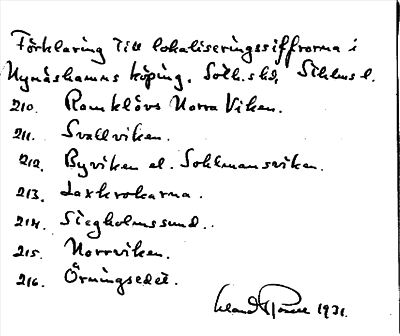 Förklaring till lokaliseringssiffrorna i
Nynäshamns köping. Söt.skd, Sthlms l.
210. Ramklövs Norra Viken.
211. Svallviken.
212. Byviken el. Sohlmansviken.
213. Laxkrokarna.
214. Stegholmssund.
215. Norrviken.
216. Örningsedet.
1931.